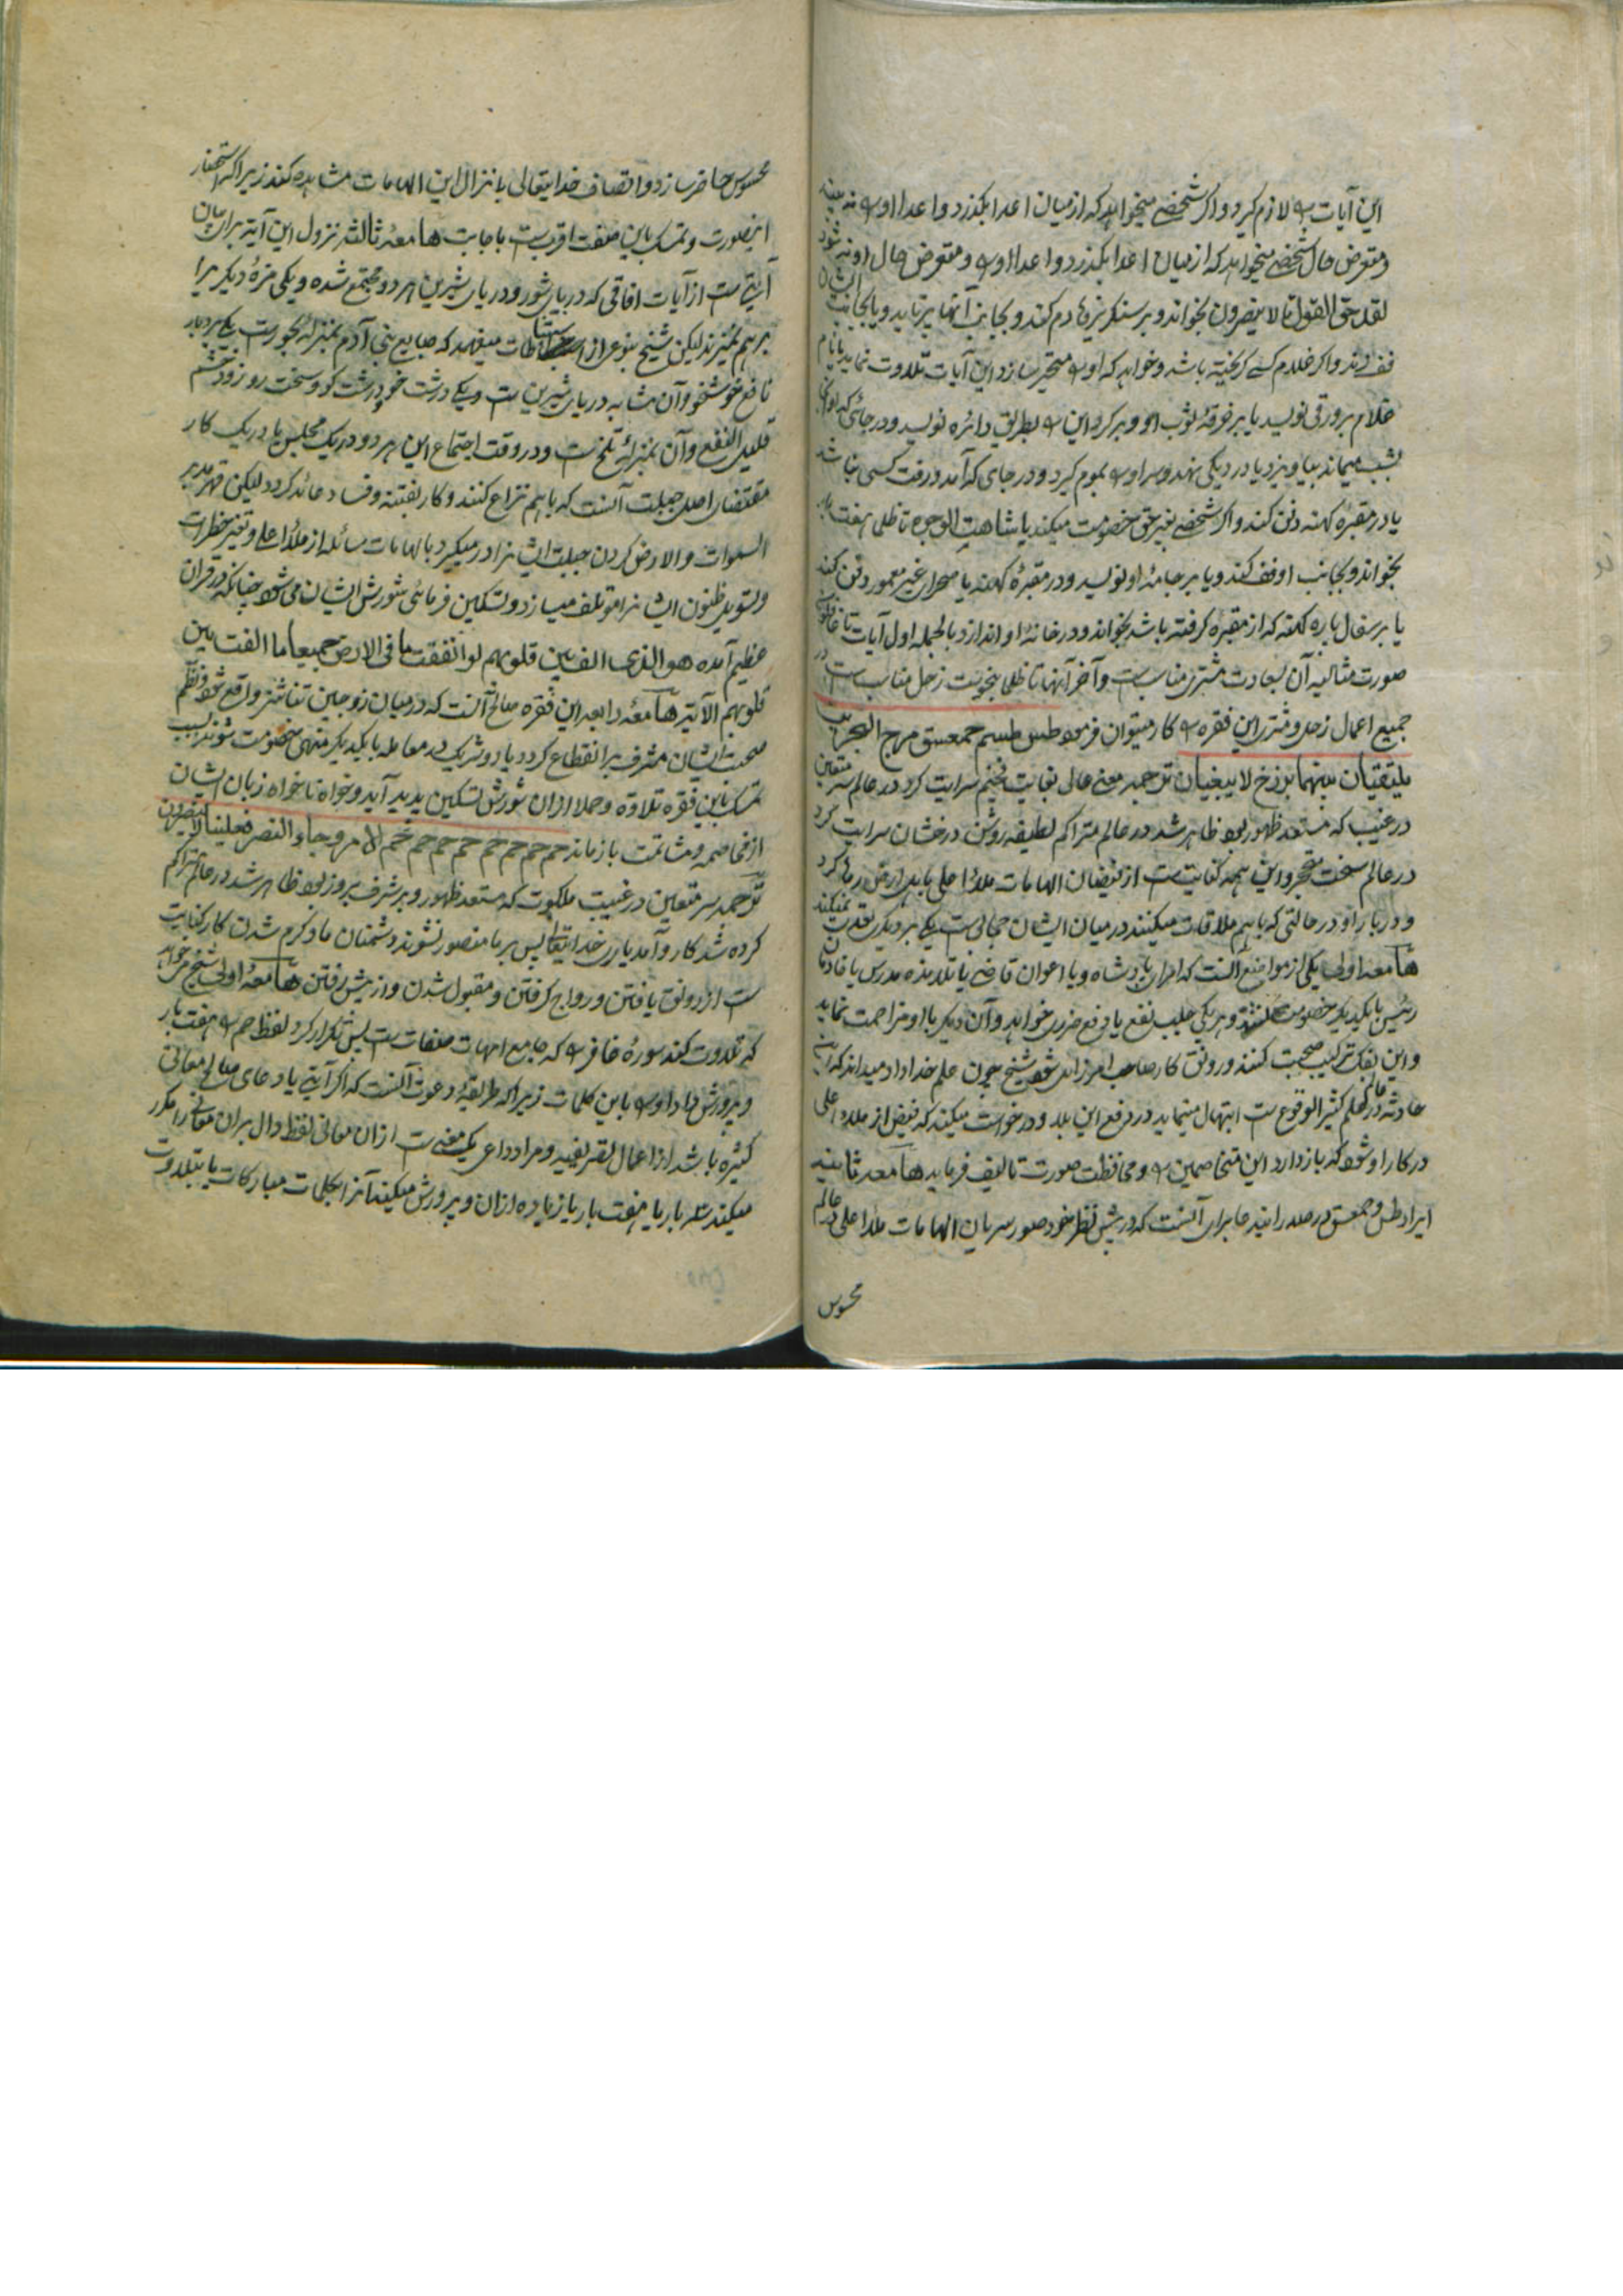 این آیات را لازم گیرد و اگر شخصے میخواهد که از میان اعدا بگذرد و اعدا او را نه بینند
و متعرض حال شخصے میخواهد که از میان اعدا بگذرد و اعدا او را و متعرض حال او نه شود
لقد حق القول تا لا یبصرون بخواند و بر سنگریزها دم کند و بجانب آنها برتابد و یا بجانب ایشان
فف زند و اگر غلام کسے گریخته باشد و خواهد که او را متحیر سازد این آیات تلاوت نماید با نام
غلام بر ورقی نویسد یا بر خرقهٔ ثوب او و برگرد این را بطریق دائره نویسد و در جائی که او
بشب میماند بیاویزد یا در دیگی نهد و سر او را بموم گیرد و در جای که آمد و رفت کسی نباشد
یا در مقبرهٔ کهنه دفن کند و اگر شخصے بغیر حق خصومت میکند یا شاهت الوجوه تا ظلما هفت بار
بخواند و بجانب او فف کند و یا بر جامهٔ او نویسد و در مقبرهٔ کهنه یا صحرای غیر معمور دفن کند
یا بر سفال پاره کهنه که از مقبره گرفته باشد بخواند و در خانهٔ او اندازد بالجمله اول آیات تا
صورت مثالیه آن بسعادت مشتری مناسب ست و آخر آنها تا ظلما بنحوست زحل مناسب ست در
جمیع اعمال زحل و مشتری این فقره را کار میتوان فرمود طس طسم حمعسق مرج البحرین
یلتقیان بینهما برزخ لا یبغیان ترجمه معنے عالی بغایت تفخیم سرایت کرد در عالم سر متعین
در غیب که مستعد ظهور بود ظاهر شد در عالم متراکم لطیفه روشن درخشان سرایت کرد
در عالم سخت متحجر و این همه کنایت ست از فیضان الهامات ملاء اعلی باهل ارض رها کرد
دو دریا را و در حالتی که باهم ملاقات میکنند در میان ایشان حجابی ست یکے بر دیگری تعدی نمیکند
هامعه اولی یکی از مواضع آنست که امرای بادشاه و یا اعوان قاضے یا تلامذه مدرس یا خادمان
رئیس بایکدیگر خصومت و هر یکی جلب نفع یا دفع ضرر میخواهد و آن دیگر با او مزاحمت نماید
و این بفک ترکیب صحبت کنند و رونق کار صاحب امر زائل شود شیخ چون علم خداداد میداند که این
حادثه در عالم کثیر الوقوع ست ابتهال مینماید در دفع این بلا و درخواست میکند که فیض از ملاء اعلی
در کار او شود که باز دارد این متخاصمین را و محافظت صورت تالیف فرماید هامعه ثانیه
ایراد طس و حمعسق در صدر اینجا برای آنست که در پیش نظر خود صور سریان الهامات ملاء اعلی در عالم
محسوس
محسوس حاضر سازد و اتصاف خدایتعالی بانزال این الهامات مشاهده کند زیرا که استحضار
اینصورت و تمسک باین صفت اقرب ست باجابت هامعهٔ ثالثه نزول این آیة برای بیان
آیتے ست از آیات آفاقی که دریای شور و دریای شیرین هر دو مجتمع شده و یکی مزهٔ دیگر را
برهم نمیزند لیکن شیخ بنوعی از استنباطات میفهمد که طبایع بنی آدم بمنزلهٔ بحور ست یکے بردبار
نافع خوشخو و آن مشابه دریای شیرین ست و یکے درشت خو درشت گو و سخت رو زود خشم
قلیل النفع و آن بمنزلهٔ تلخ ست و در وقت اجتماع این هر دو در یک مجلس یا در یک کار
مقتضای اصل جبلت آنست که باهم نزاع کنند و کار بفتنه و فساد عائد گردد لیکن قهر مدبر
السموات و الارض گردن جبلت ایشانرا در میگیرد بالهامات سائله از ملاء اعلی و تغیر خطرات
و تسویل ظنون ایشانرا مؤتلف میسازد و تسکین فرمائی شورش ایشان میشود چنانکه در قرآن
عظیم آمده هو الذی الف بین قلوبهم لو انفقت ما فی الارض جمیعا ما الفت بین
قلوبهم الآیة هامعهٔ رابعه این فقره صالح آنست که در میان زوجین تناشز واقع شود و نظم
صحبت ایشان مشرف بر انقطاع گردد یا دو شریک در معامله بایکدیگر منتهی بخصومت شوند بسبب
تمسک باین فقره تلاوة و حملا از ان شورش تسکین پدید آید و خواه ناخواه زبان ایشان
از مخاصمه و مشاتمت باز ماند حم حم حم حم حم حم حم حم الامر و جاء النصر فعلینا لا ینصرون
ترجمه سر متعین در غیب ملکوت که مستعد ظهور و بر شرف بروز بود ظاهر شد در عالم متراکم
کرده شد کار و آمد یاری خدایتعالی پس بر ما منصور نشوند دشمنان ما و گرم شدن کار کنایت
ست از رونق یافتن و رواج گرفتن و مقبول شدن و از پیش رفتن هامعهٔ اولی شیخ میخواهد
که تلاوت کند سورهٔ غافر را که جامع امهات صفات ست پس تکرار کرد لفظ حم را هفت بار
و پرورش داد او را باین کلمات زیرا که طریقهٔ دعوت آنست که اگر آیتے یا دعای معانی
کثیره باشد از اعمال تصریفیه و مراد داعی یک معنے ست ازان معانی لفظ دال بران معانی را مکرر
میکند سه بار یا هفت بار یا زیاده ازان و پرورش میکند آنرا بکلمات مبارکات یا بتلاوت